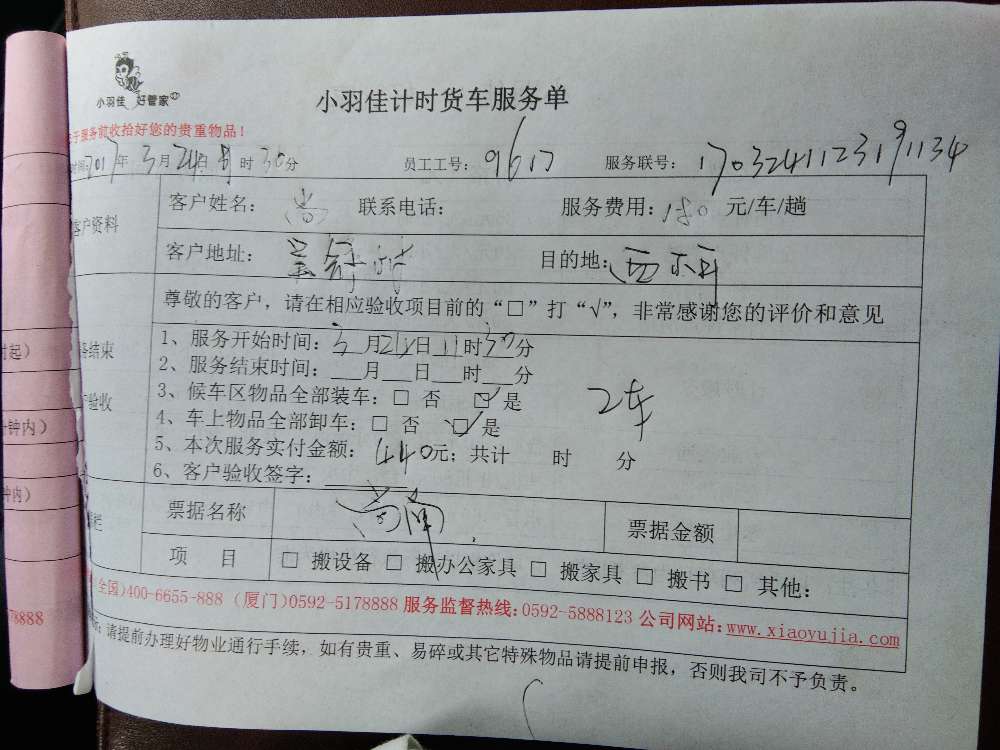 小羽佳 好管家
小羽佳计时货车服务单
服务前收拾好您的贵重物品！
时间：2017年3月24日 时30分 员工工号：9617 服务联号：1703241123191134
客户资料
客户姓名：尚 联系电话： 服务费用：180元/车/趟
客户地址： 目的地：西
尊敬的客户，请在相应验收项目前的“□”打“√”，非常感谢您的评价和意见
1、服务开始时间：3月24日11时30分
时起）
结束
2、服务结束时间：___月___日___时___分
3、候车区物品全部装车：□ 否 ☑ 是
2车
验收
4、车上物品全部卸车：□ 否 ☑ 是
钟内）
5、本次服务实付金额：440元；共计 时 分
6、客户验收签字：
钟内）
票据名称 票据金额
项 目 □ 搬设备 □ 搬办公家具 □ 搬家具 □ 搬书 □ 其他：
全国)400-6655-888 (厦门)0592-5178888 服务监督热线：0592-5888123 公司网站：www.xiaoyujia.com
78888
请提前办理好物业通行手续，如有贵重、易碎或其它特殊物品请提前申报，否则我司不予负责。